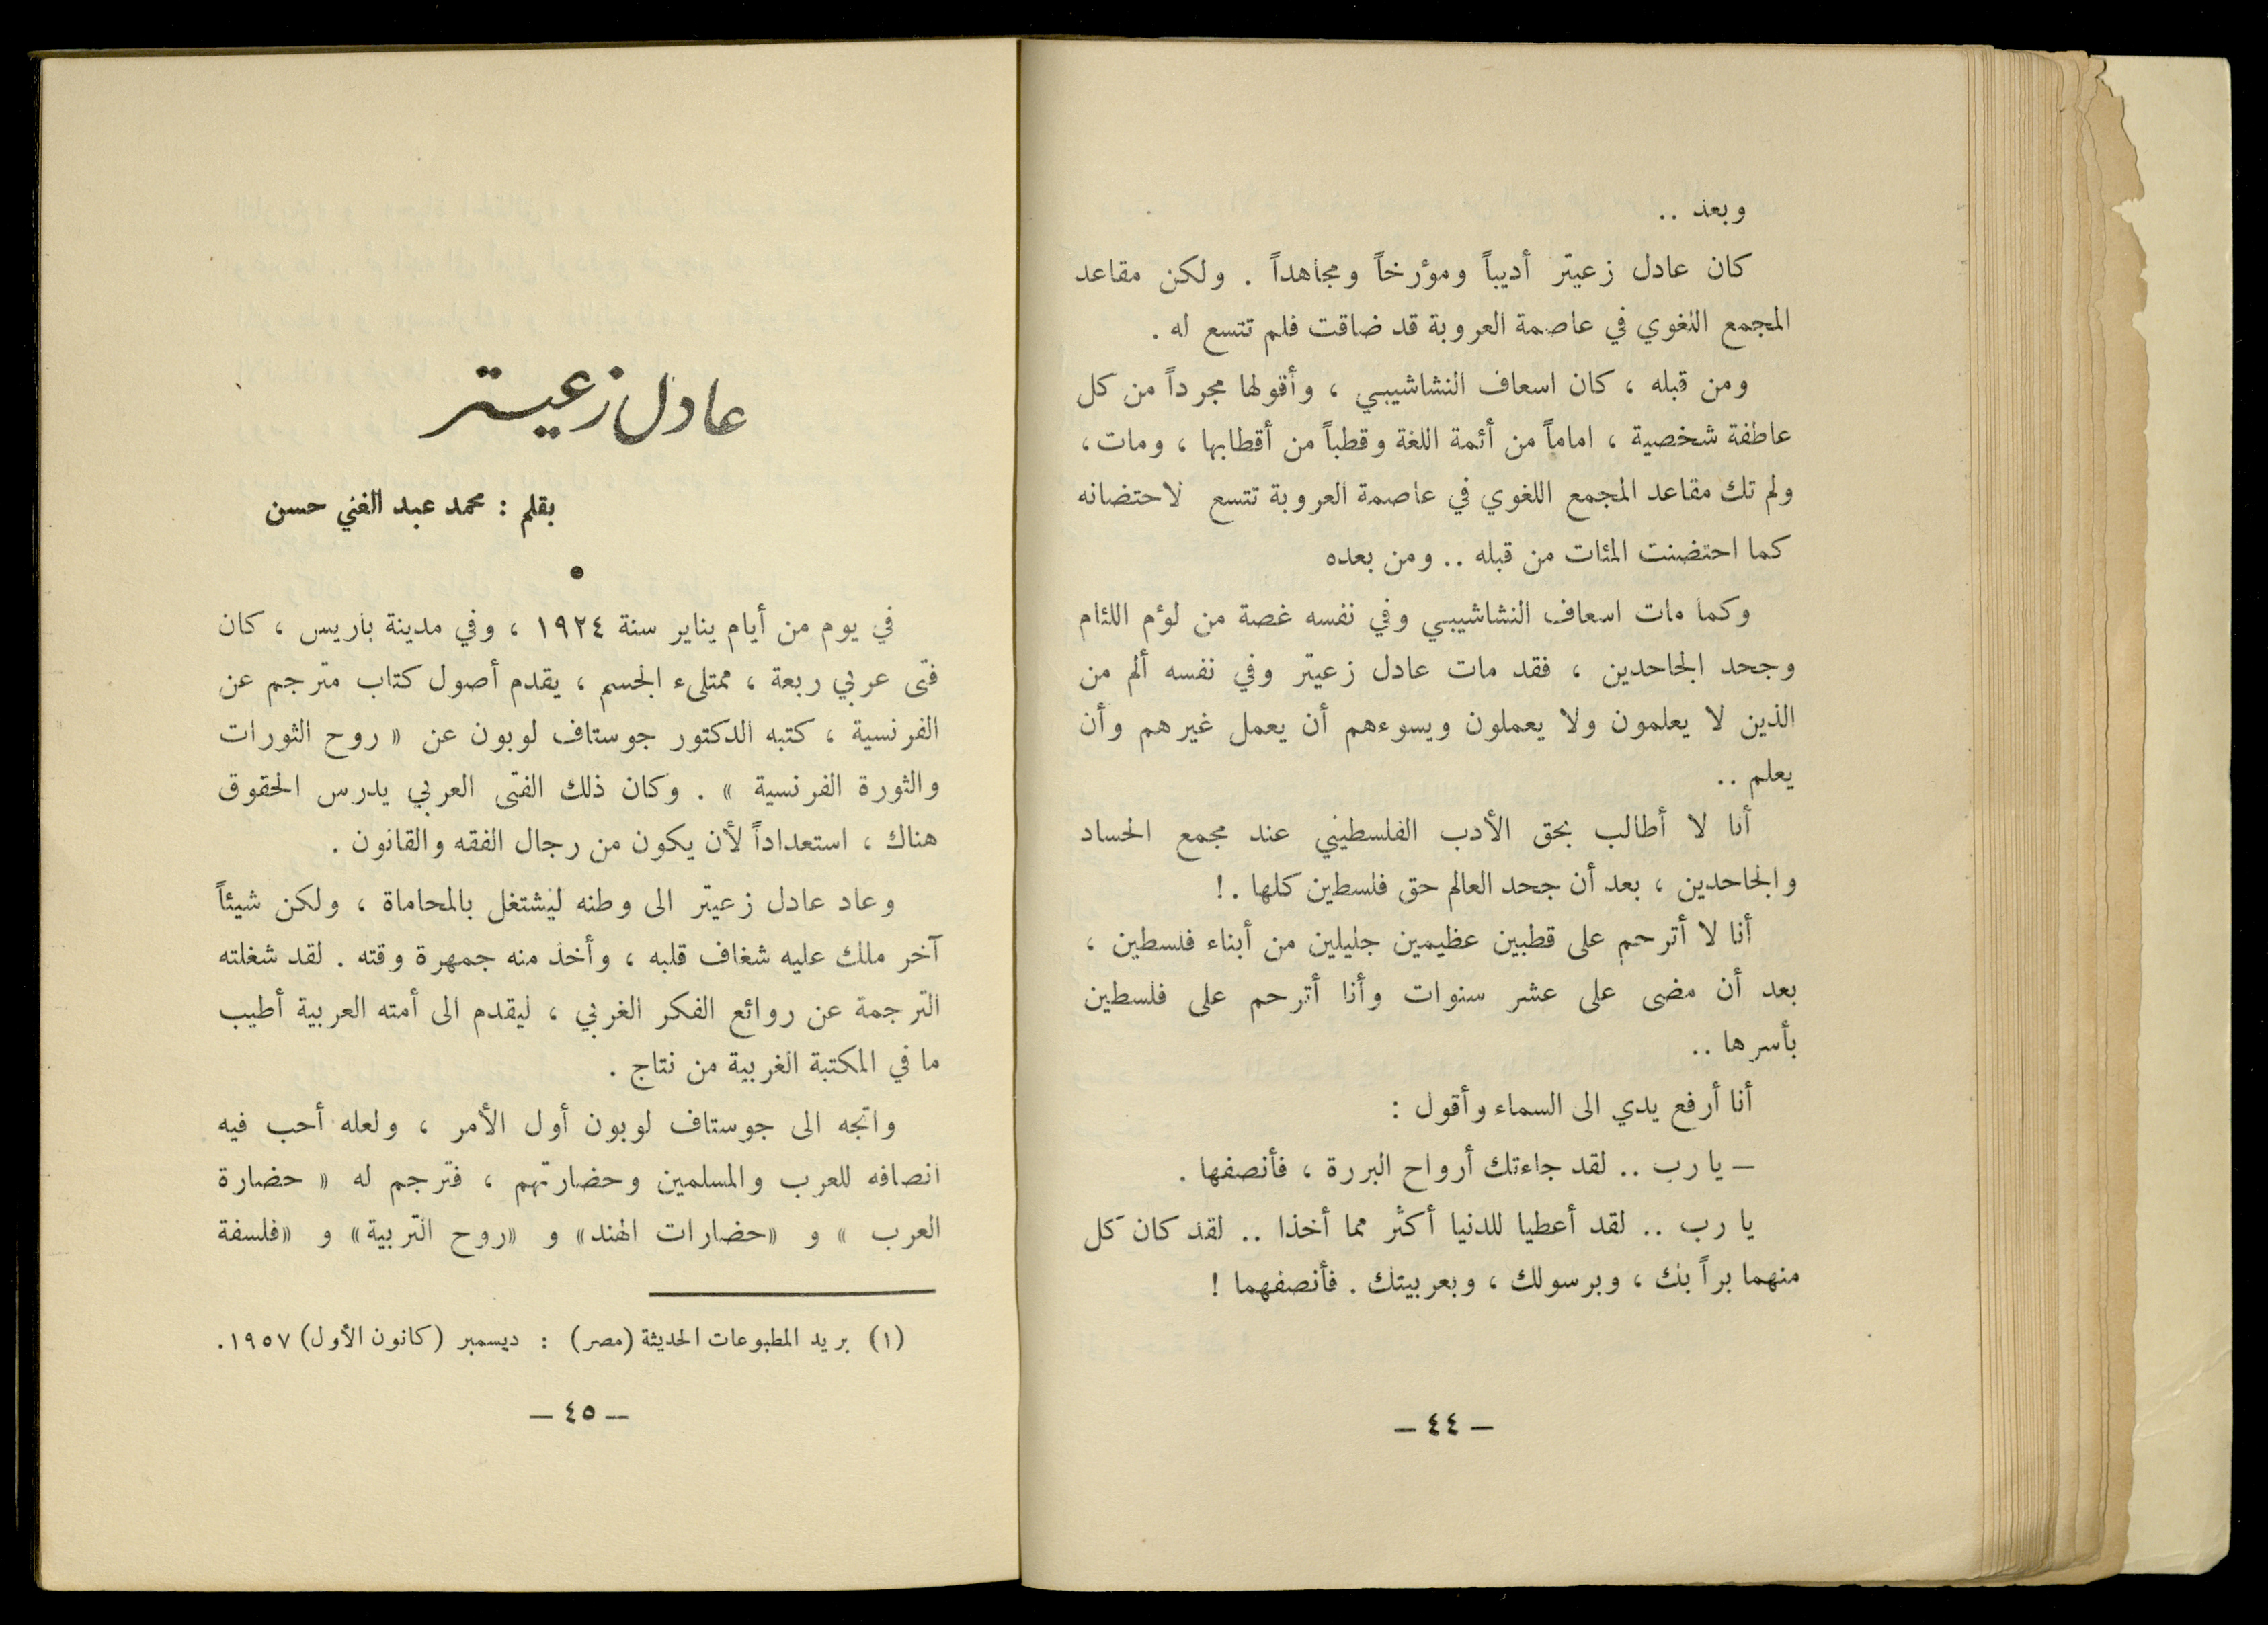 وبعد ..
كان عادل زعيتر أديباً ومؤرخاً ومجاهداً . ولكن مقاعد
المجمع اللغوي في عاصمة العروبة قد ضاقت فلم تتسع له .
ومن قبله ، كان اسعاف النشاشيبي ، وأقولها مجرداً من كل
عاطفة شخصية ، اماماً من أئمة اللغة وقطباً من أقطابها ، ومات ،
ولم تك مقاعد المجمع اللغوي في عاصمة العروبة تتسع لاحتضانه
كما احتضنت المئات من قبله .. ومن بعده
وكما مات اسعاف النشاشيبي وفي نفسه غصة من لؤم اللئام
وجحد الجاحدين ، فقد مات عادل زعيتر وفي نفسه ألم من
الذين لا يعلمون ولا يعملون ويسوءهم أن يعمل غيرهم وأن
يعلم ..
أنا لا أطالب بحق الأدب الفلسطيني عند مجمع الحساد
والجاحدين ، بعد أن جحد العالم حق فلسطين كلها . !
أنا لا أترحم على قطبين عظيمين جليلين من أبناء فلسطين ،
بعد أن مضى على عشر سنوات وأنا أترحم على فلسطين
بأسرها ..
أنا أرفع يدي الى السماء وأقول :
— يا رب .. لقد جاءتك أرواح البررة ، فأنصفها .
يا رب .. لقد أعطيا للدنيا أكثر مما أخذا .. لقد كان كل
منهما براً بك ، وبرسولك ، وبعربيتك . فأنصفهما !
— ٤٤ —
عادل زعيتر
بقلم : محمد عبد الغني حسن
في يوم من أيام يناير سنة ١٩٢٤ ، وفي مدينة باريس ، كان
فتى عربي ربعة ، ممتلىء الجسم ، يقدم أصول كتاب مترجم عن
الفرنسية ، كتبه الدكتور جوستاف لوبون عن « روح الثورات
والثورة الفرنسية » . وكان ذلك الفتى العربي يدرس الحقوق
هناك ، استعداداً لأن يكون من رجال الفقه والقانون .
وعاد عادل زعيتر الى وطنه ليشتغل بالمحاماة ، ولكن شيئاً
آخر ملك عليه شغاف قلبه ، وأخذ منه جمهرة وقته . لقد شغلته
الترجمة عن روائع الفكر الغربي ، ليقدم الى أمته العربية أطيب
ما في المكتبة الغربية من نتاج .
واتجه الى جوستاف لوبون أول الأمر ، ولعله أحب فيه
انصافه للعرب والمسلمين وحضارتهم ، فترجم له « حضارة
العرب » و «حضارات الهند» و «روح التربية» و «فلسفة
(١) بريد المطبوعات الحديثة (مصر) : ديسمبر (كانون الأول) ١٩٥٧.
— ٤٥ —